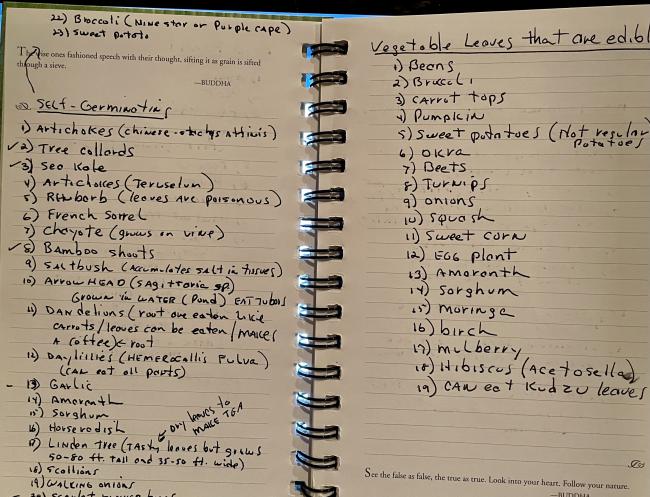 22) Broccoli (Nine star or Purple cape)
23) Sweet potato
The wise ones fashioned speech with their thought, sifting it as grain is sifted
through a sieve.
—BUDDHA
Self-Germinating
1) Artichokes (chinese-stachys Affinis)
✓2) Tree collards
✓3) Sea Kale
4) Artichokes (Jeruselum)
5) Rhubarb (leaves Are poisonous)
6) French Sorrel
7) Chayote (grows on vine)
✓8) Bamboo shoots
9) Saltbush (Accumulates salt in tissues)
10) Arrow HEAD (Sagittaria sp.)
Grown in WATER (Pond) EAT Tubers
11) Dandelions (root are eaten like
carrots/leaves can be eaten/MAKES
A coffee)← root
12) Daylillies (HEMEROCALLIS Fulva)
(CAN eat all parts)
- 13) Garlic
14) Amaranth
15) Sorghum
16) Horseradish
Dry leaves to
MAKE TEA
17) Linden Tree (TAsty leaves but grows
50-80 ft. tall and 35-50 ft. wide)
18) Scallions
19) WALKING onions
20) Scarlet runner
Vegetable Leaves that are edibl
1) Beans
2) Broccoli
3) carrot tops
4) Pumpkin
5) Sweet potatoes (Not regular
potatoes
6) Okra
7) Beets
8) Turnips
9) onions
10) Squash
11) Sweet corn
12) EGG plant
13) Amaranth
14) Sorghum
15) moringa
16) birch
17) mulberry
18) Hibiscus (Acetosella)
19) CAN eat Kudzu leaves
See the false as false, the true as true. Look into your heart. Follow your nature.
—BUDDHA